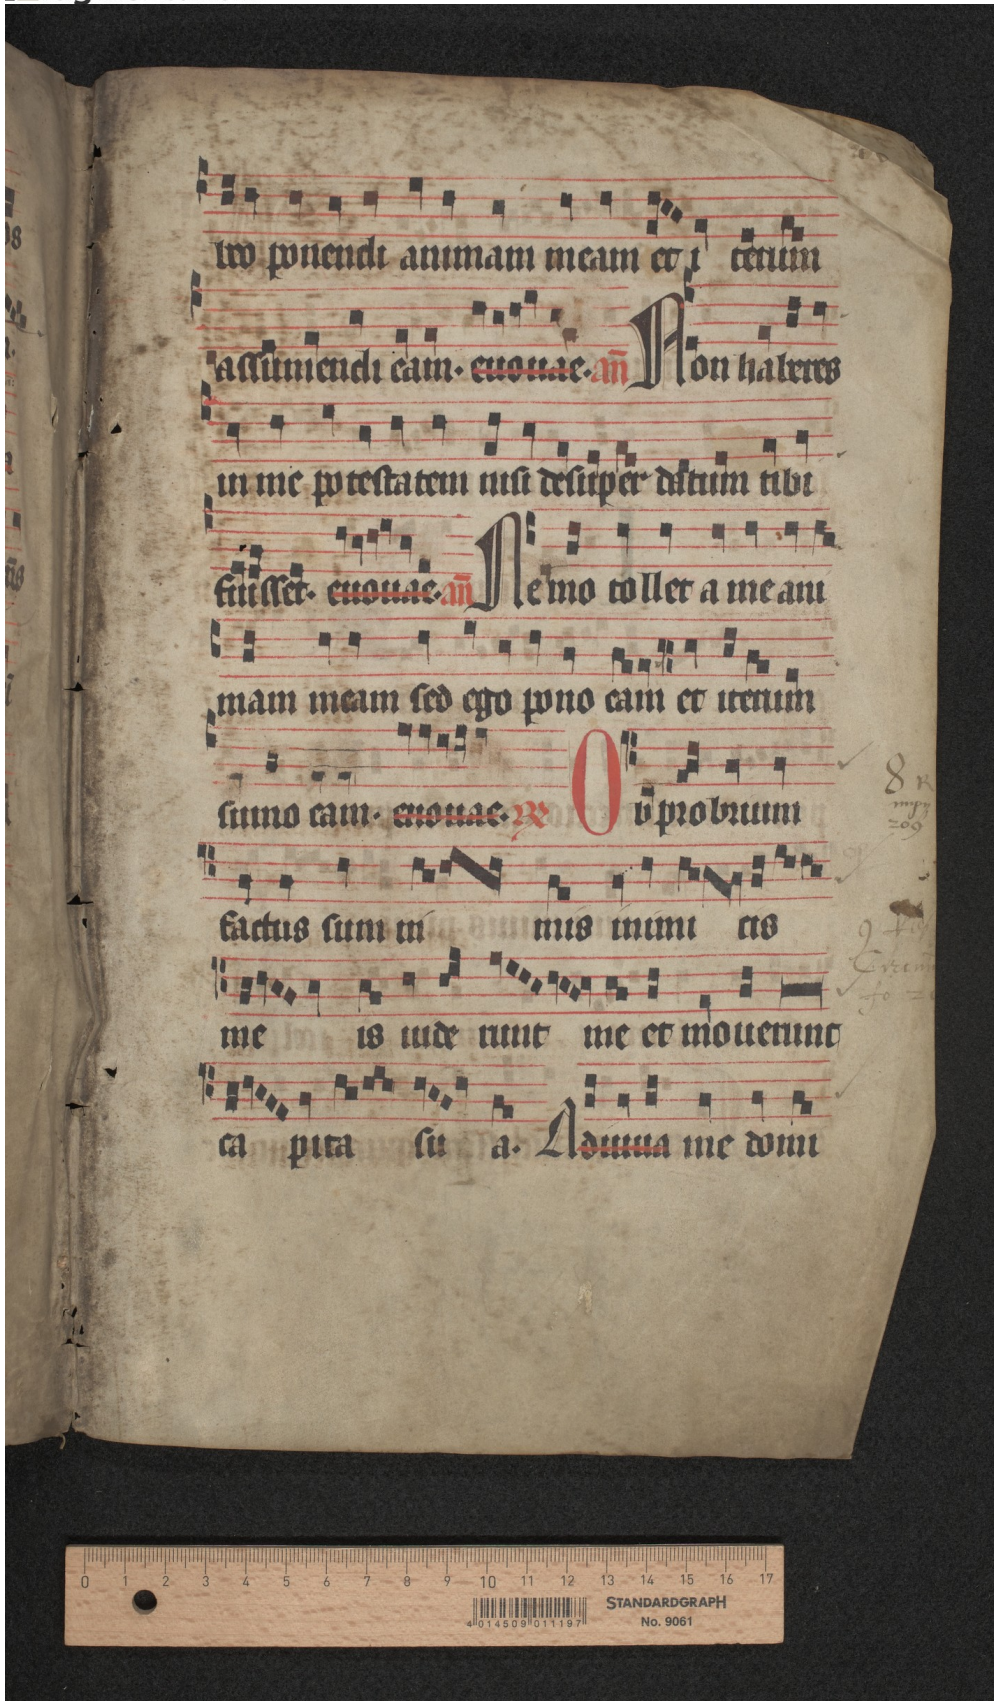 beo ponendi animam meam et i terum
assumendi eam. euouae. an̄ Non haberes
in me potestatem nisi desuper datum tibi
fuisset. euouae. an̄ Nemo tollet a me ani
mam meam sed ego pono eam et iterum
sumo eam. euouae. R Obprobrium
factus sum ni mis inimi cis
me is uide runt me et mouerunt
ca pita su a. Adiuua me domi
8
209
0 1 2 3 4 5 6 7 8 9 10 11 12 13 14 15 16 17
STANDARDGRAPH
No. 9061
4 014509 011197